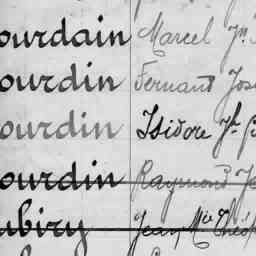 ourdain Marcel Jn
ourdin Fernand Jos
ourdin Isidore Jh
ourdin Raymond Je
ubiry Jean Mie Théop